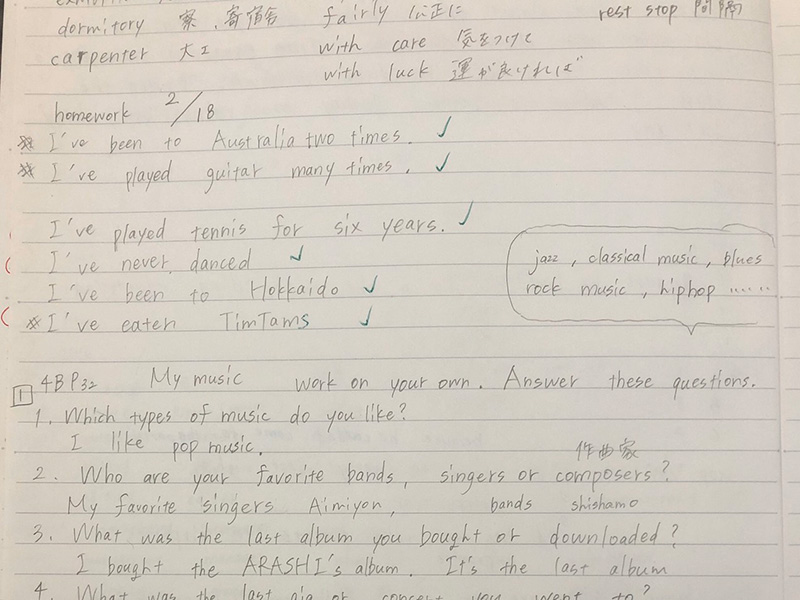 dormitory 寮、寄宿舎 fairly 公正に rest stop 間隔
carpenter 大工 with care 気をつけて
with luck 運が良ければ
homework 2/18
※ I've been to Australia two times. ✓
※ I've played guitar many times. ✓
I've played tennis for six years. ✓
I've never danced ✓
I've been to Hokkaido ✓
※ I've eaten TimTams ✓
jazz, classical music, blues
rock music, hiphop ......
1 4B P32 My music work on your own. Answer these questions.
1. Which types of music do you like?
I like pop music.
作曲家
2. Who are your favorite bands, singers or composers?
My favorite singers Aimiyon, bands shishamo
3. What was the last album you bought or downloaded?
I bought the ARASHI's album. It's the last album
4. What was the last gig or concert you went to?